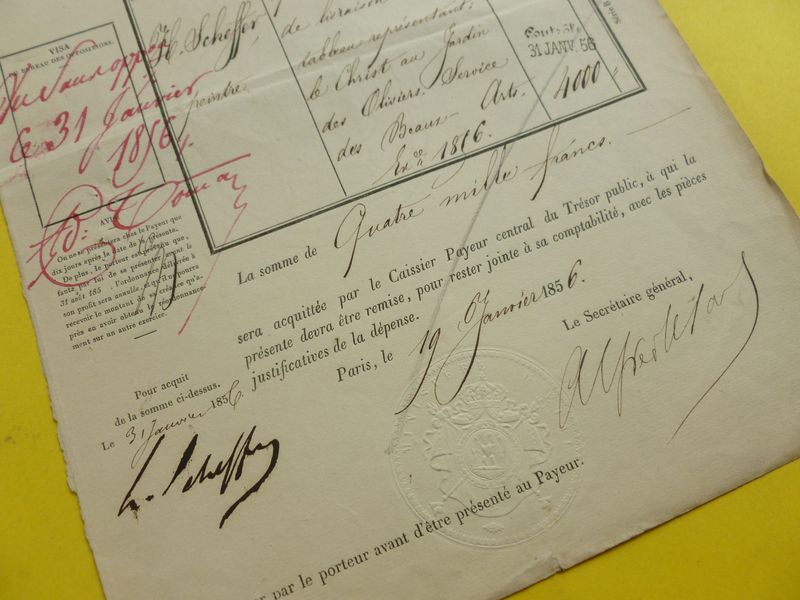 VISA
BUREAU DES OPPOSITIONS.
31 Janvier
1856
H. Scheffer,
peintre.
de livraison
tableau représentant
le Christ au Jardin
des Oliviers. Service
des Beaux-Arts.
Exce 1856.
Contrôle
31 JANV. 56
4000
Série B
La somme de Quatre mille francs.
sera acquittée par le Caissier Payeur central du Trésor public, à qui la
présente devra être remise, pour rester jointe à sa comptabilité, avec les pièces
justificatives de la dépense.
Paris, le 19 Janvier 1856.
Le Secrétaire général,
AVIS
On ne se présentera chez le Payeur que
dix jours après la date de la présente.
De plus, le porteur est prévenu que,
faute par lui de se présenter avant le
31 août 185 , l'ordonnance délivrée à
son profit sera annulée, et qu'il ne pourra
recevoir le montant de sa créance qu'a-
près en avoir obtenu le réordonnance-
ment sur un autre exercice.
Pour acquit
de la somme ci-dessus.
Le 31 Janvier 1856
h. Scheffer
par le porteur avant d'être présenté au Payeur.